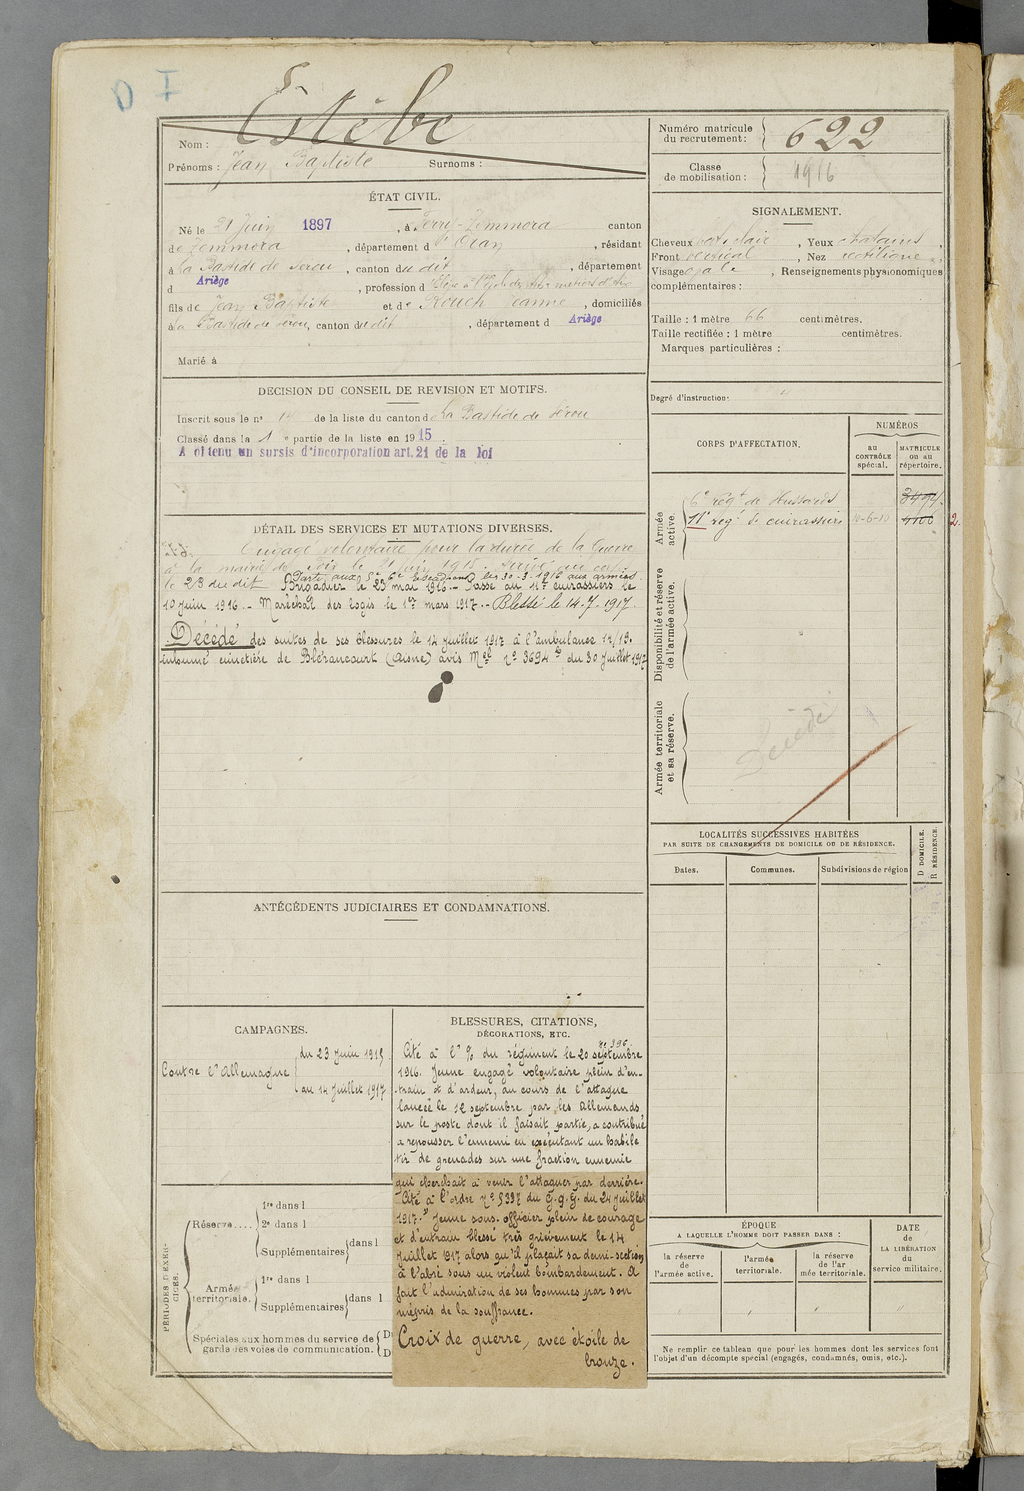 D I
Estèbe
Nom :
Prénoms : Jean Baptiste Surnoms :
Numéro matricule
du recrutement: 622
Classe
de mobilisation : 1916
ÉTAT CIVIL.
Né le 21 Juin 1897, à Ferry-Zemmora canton
de Zemmora, département d'Oran, résidant
à La Bastide de Sérou, canton du dit, département
d Ariège, profession d
fils de Jean Baptiste et de Rouch Jeanne, domiciliés
à La Bastide de Sérou, canton du dit, département d Ariège
Marié à
SIGNALEMENT.
Cheveux clair, Yeux chatains,
Front vertical, Nez rectiligne,
Visage ovale, Renseignements physionomiques
complémentaires :
Taille : 1 mètre 66 centimètres.
Taille rectifiée : 1 mètre centimètres.
Marques particulières :
Degré d'instruction:
DECISION DU CONSEIL DE REVISION ET MOTIFS.
Inscrit sous le n° 14 de la liste du canton de La Bastide de Sérou
Classé dans la 1e partie de la liste en 1915.
A obtenu un sursis d'incorporation art. 21 de la loi
CORPS D'AFFECTATION.
NUMÉROS
au
CONTRÔLE
spécial.
MATRICULE
ou au
répertoire.
Armée
active.
6e régt de Hussards 3494
11e régt de cuirassiers 4100 2.
Disponibilité et réserve
de l'armée active.
Armée territoriale
et sa réserve.
Décédé
DÉTAIL DES SERVICES ET MUTATIONS DIVERSES.
Engagé volontaire pour la durée de la Guerre
à la mairie de Foix le 21 juin 1915. Arrivé au corps
le 23 du dit Parti aux 5e 6e Escadrons les 30-3-1916 aux armées
Brigadier le 23 mai 1916. - Passé au 11e cuirassiers le
10 juin 1916. - Maréchal des logis le 1er mars 1917. - Blessé le 14.7.1917.
Décédé des suites de ses blessures le 14 juillet 1917 à l'ambulance 12/13.
inhumé cimetière de Blérancourt (Aisne) avis Mel n° 3694 du 30 juillet 1917
LOCALITÉS SUCCESSIVES HABITÉES
PAR SUITE DE CHANGEMENTS DE DOMICILE OU DE RÉSIDENCE.
D DOMICILE.
R RÉSIDENCE.
Dates. Communes. Subdivisions de région
ANTÉCÉDENTS JUDICIAIRES ET CONDAMNATIONS.
CAMPAGNES.
Contre l'Allemagne
du 23 juin 1915
au 14 juillet 1917
BLESSURES, CITATIONS,
DÉCORATIONS, ETC.
Cité à l'O/ du régiment n° 396 le 20 septembre
1916. Jeune engagé volontaire plein d'en-
train et d'ardeur, au cours de l'attaque
lancée le 12 septembre par les Allemands
sur le poste dont il faisait partie, a contribué
a repousser l'ennemi en exécutant un habile
tir de grenades sur une fraction ennemie
qui cherchait à venir l'attaquer par derrière.
Cité à l'ordre n° 5397 du G.q.G. du 24 juillet
1917. "Jeune sous-officier plein de courage
et d'entrain blessé très grièvement le 14
juillet 1917 alors qu'il plaçait sa demi-section
à l'abri sous un violent bombardement. A
fait l'admiration de ses hommes par son
mépris de la souffrance.
Croix de guerre, avec étoile de
bronze.
PÉRIODES D'EXER-
CICES.
Réserve....
1re dans l
2e dans l
Supplémentaires dans l
Armée
territoriale.
1re dans l
Supplémentaires dans l
Spéciales aux hommes du service de
garde des voies de communication.
D
D
ÉPOQUE
A LAQUELLE L'HOMME DOIT PASSER DANS :
la réserve
de
l'armée active.
l'armée
territoriale.
la réserve
de l'ar
mée territoriale.
DATE
de
LA LIBÉRATION
du
service militaire.
Ne remplir ce tableau que pour les hommes dont les services font
l'objet d'un décompte spécial (engagés, condamnés, omis, etc.).